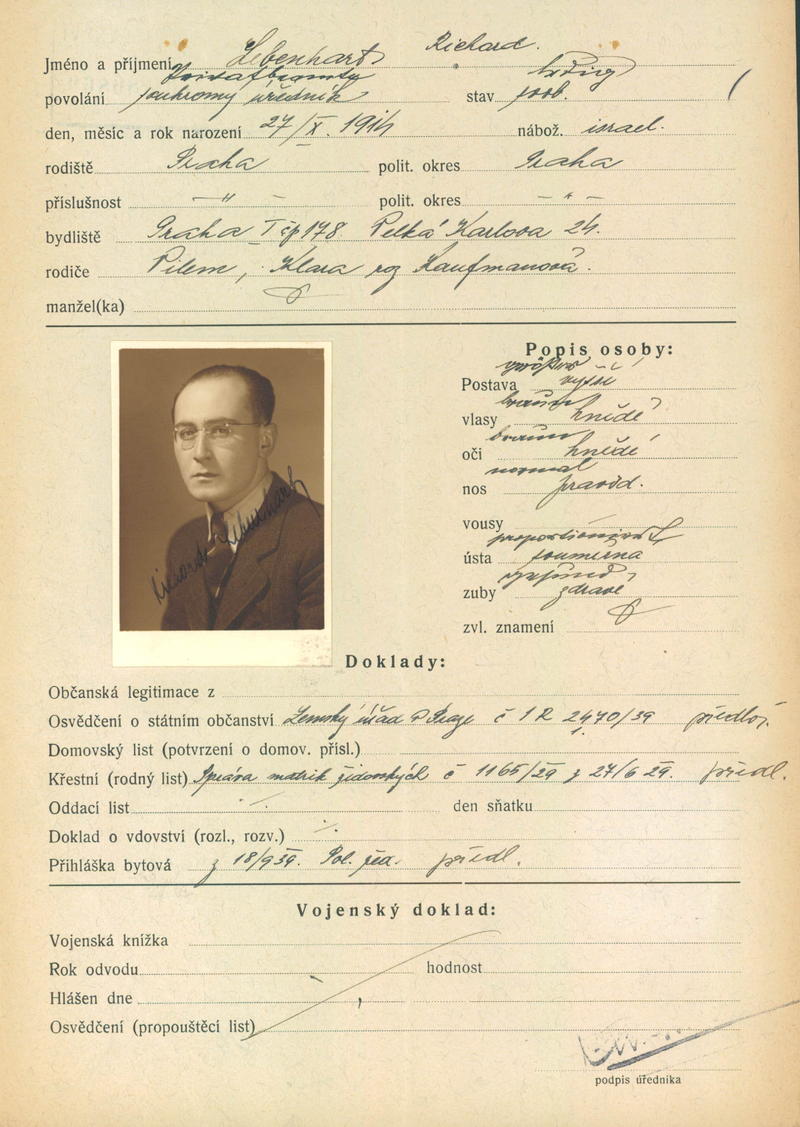 Jméno a příjmení Lebenhart Richard.
Privatbeamter ledig
povolání soukromý úředník stav svob.
den, měsíc a rok narození 27/X. 1914 nábož. israel.
rodiště Praha polit. okres Praha
příslušnost — " — polit. okres — " —
bydliště Praha I čp 178 Karlova 24.
rodiče Vilem, Klara roz Kaufmanová.
manžel(ka)
Popis osoby:
Postava vyšší
braun
vlasy hnědé
braun
oči hnědé
normal
nos pravid.
vousy
proportioniert
ústa souměrná
gesund
zuby zdravé
zvl. znamení
Richard Lebenhart
Doklady:
Občanská legitimace z
Osvědčení o státním občanství Zemský úřad v Praze č 1 R 2470/39 předlož.
Domovský list (potvrzení o domov. přísl.)
Křestní (rodný list) Správa matrik židovských č 1165/29 z 27/6 29. předl.
Oddací list ./. den sňatku
Doklad o vdovství (rozl., rozv.) ./.
Přihláška bytová z 18/9 39. Pol. řed. předl.
Vojenský doklad:
Vojenská knížka
Rok odvodu hodnost
Hlášen dne
Osvědčení (propouštěcí list)
podpis úředníka